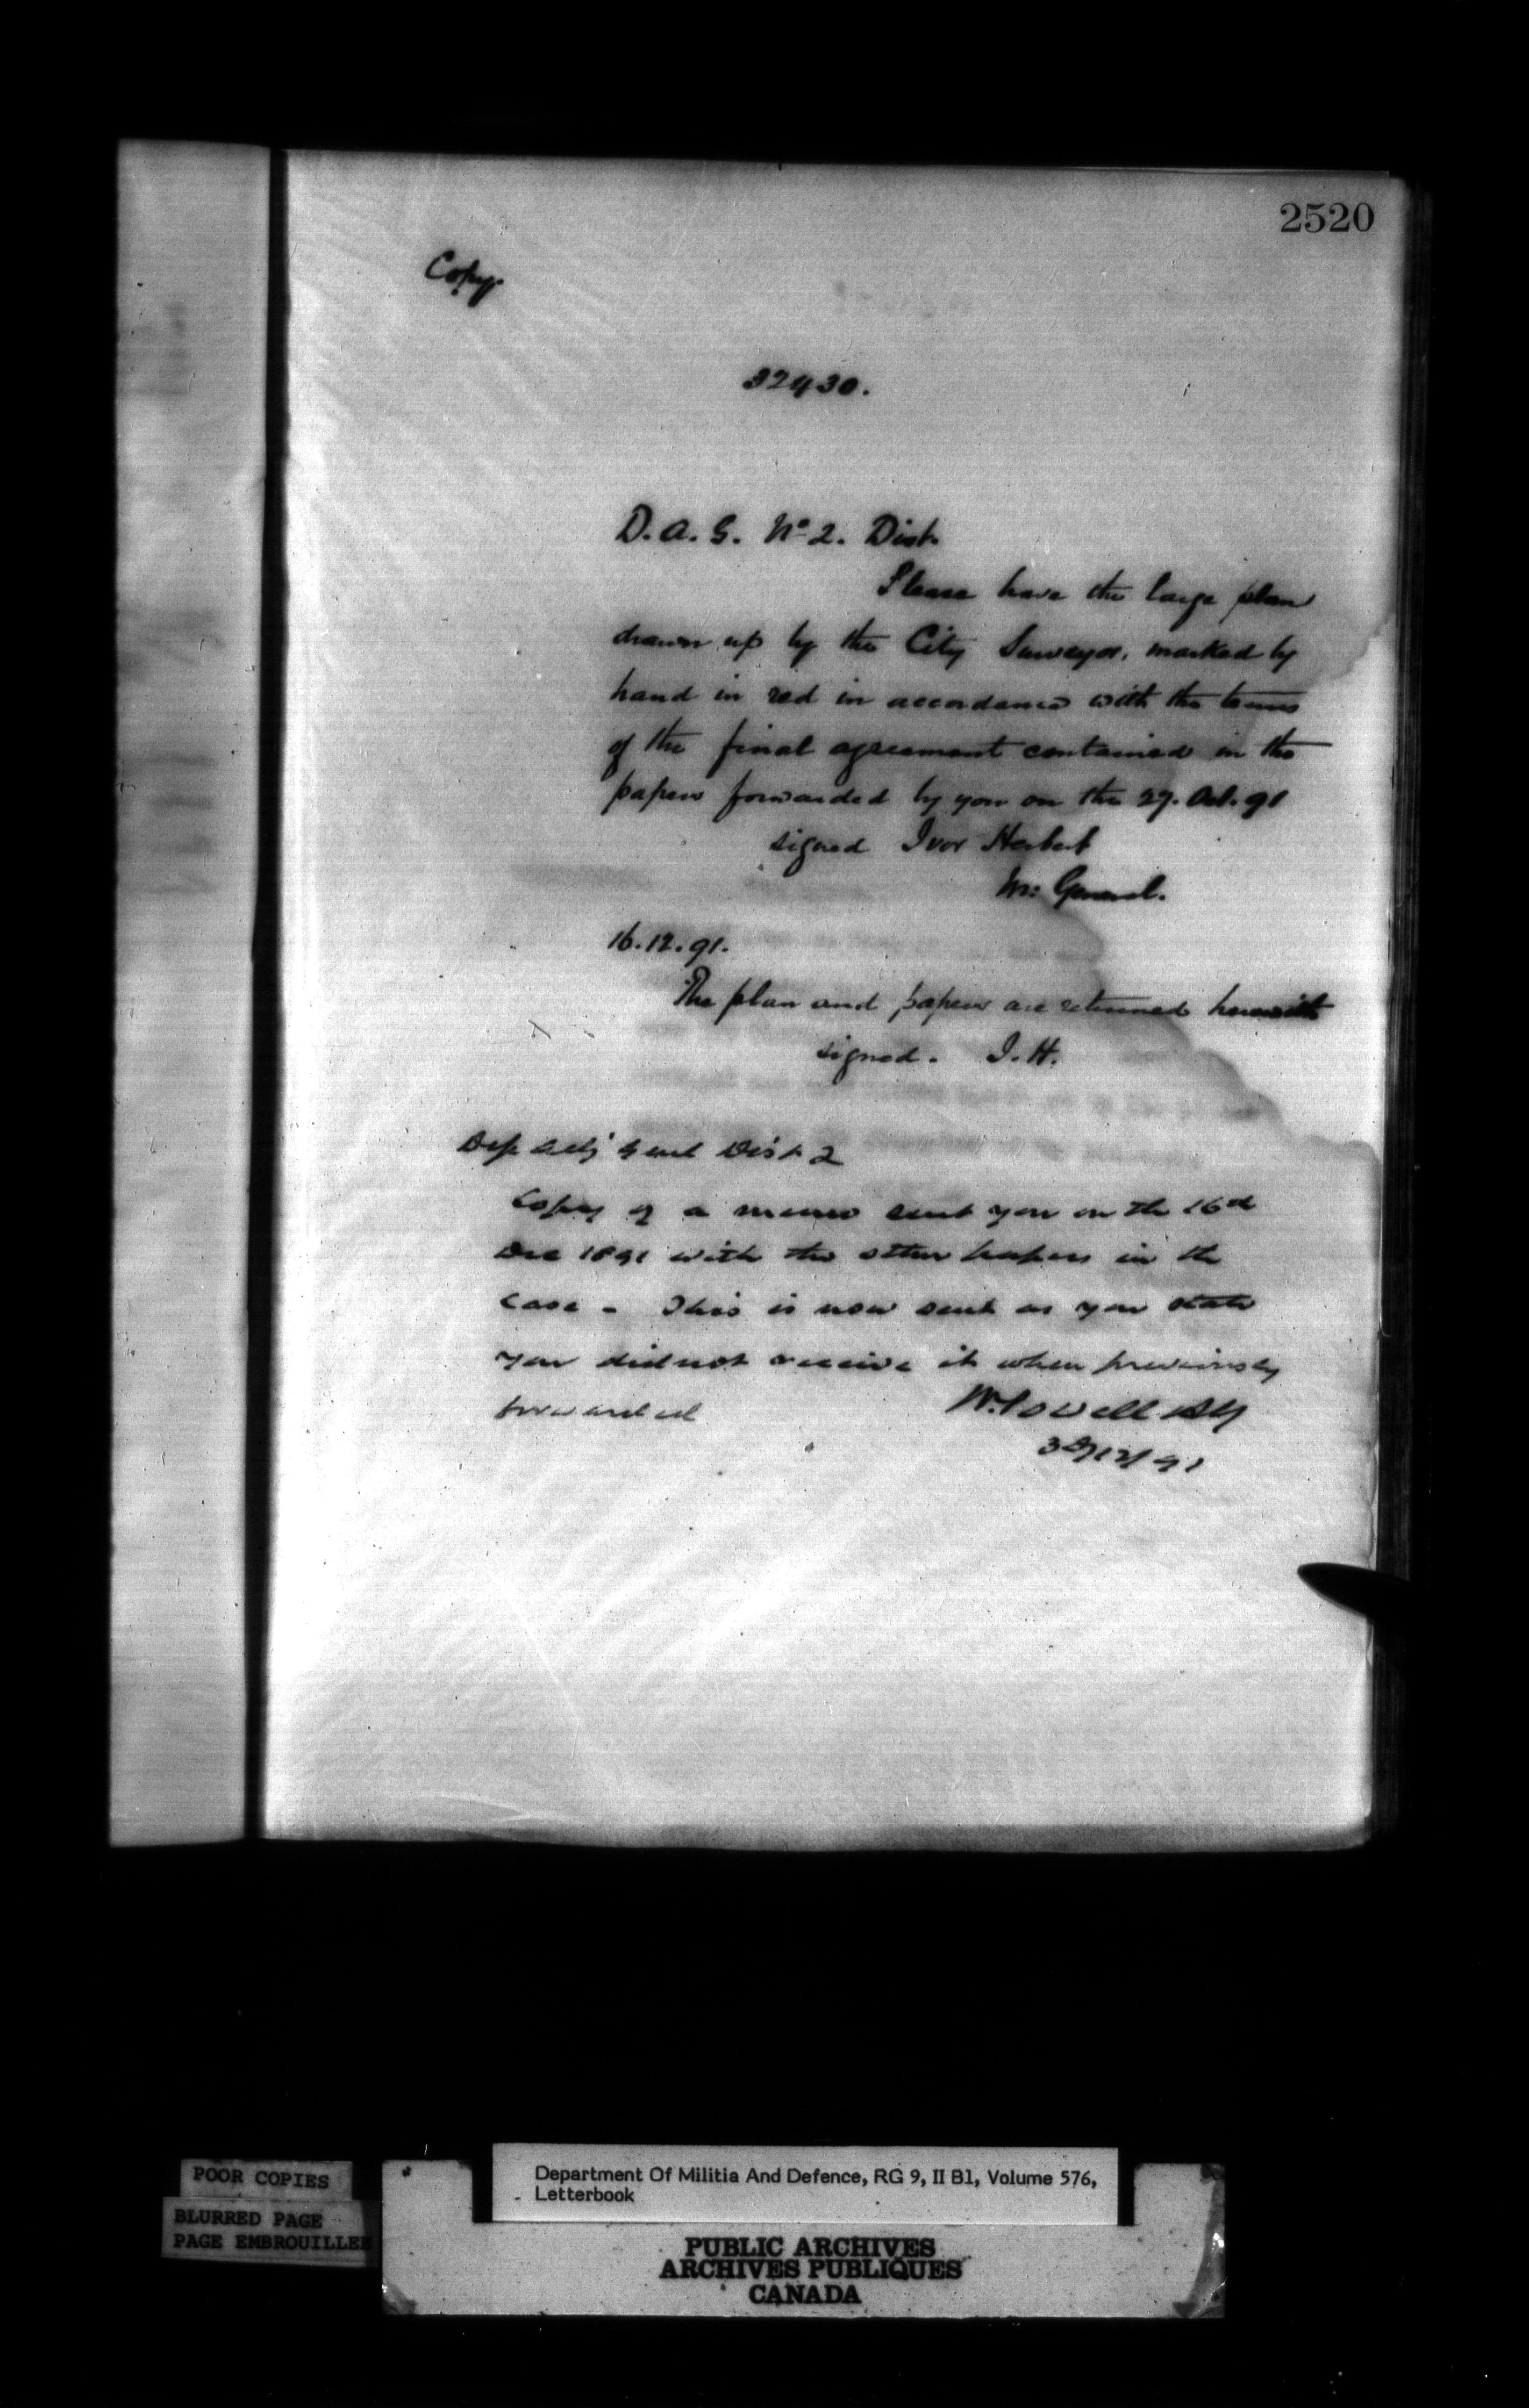 2520
Copy.
32430.
D.A.G. No 2. Dist.
Please have the large plan
drawn up by the City Surveyor, marked by
hand in red in accordance with the terms
of the final agreement contained in the
papers forwarded by you on the 27. Oct. 91
signed Ivor Herbert
M: General.
16.12.91.
The plan and papers are returned herewith
signed. I.H.
Dep Adj Genl Dist 2
Copy of a memo sent you on the 16th
Dec 1891 with the other papers in the
case - This is now sent as you state
you did not receive it when previously
forwarded
W. Powell AG
30/12/91
POOR COPIES
BLURRED PAGE
PAGE EMBROUILLEE
Department Of Militia And Defence, RG 9, II B1, Volume 576,
Letterbook
PUBLIC ARCHIVES
ARCHIVES PUBLIQUES
CANADA